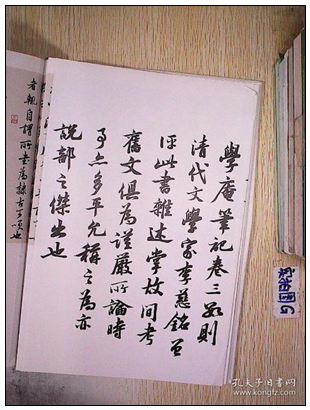 學庵筆記卷三
則
清代文學家李慈銘曾
評此書雜述掌故間考
舊文俱為謹嚴所論時
事亦多平允稱之為亦
說部之傑出也
自謂所書為隸古
也
孔夫子旧书网